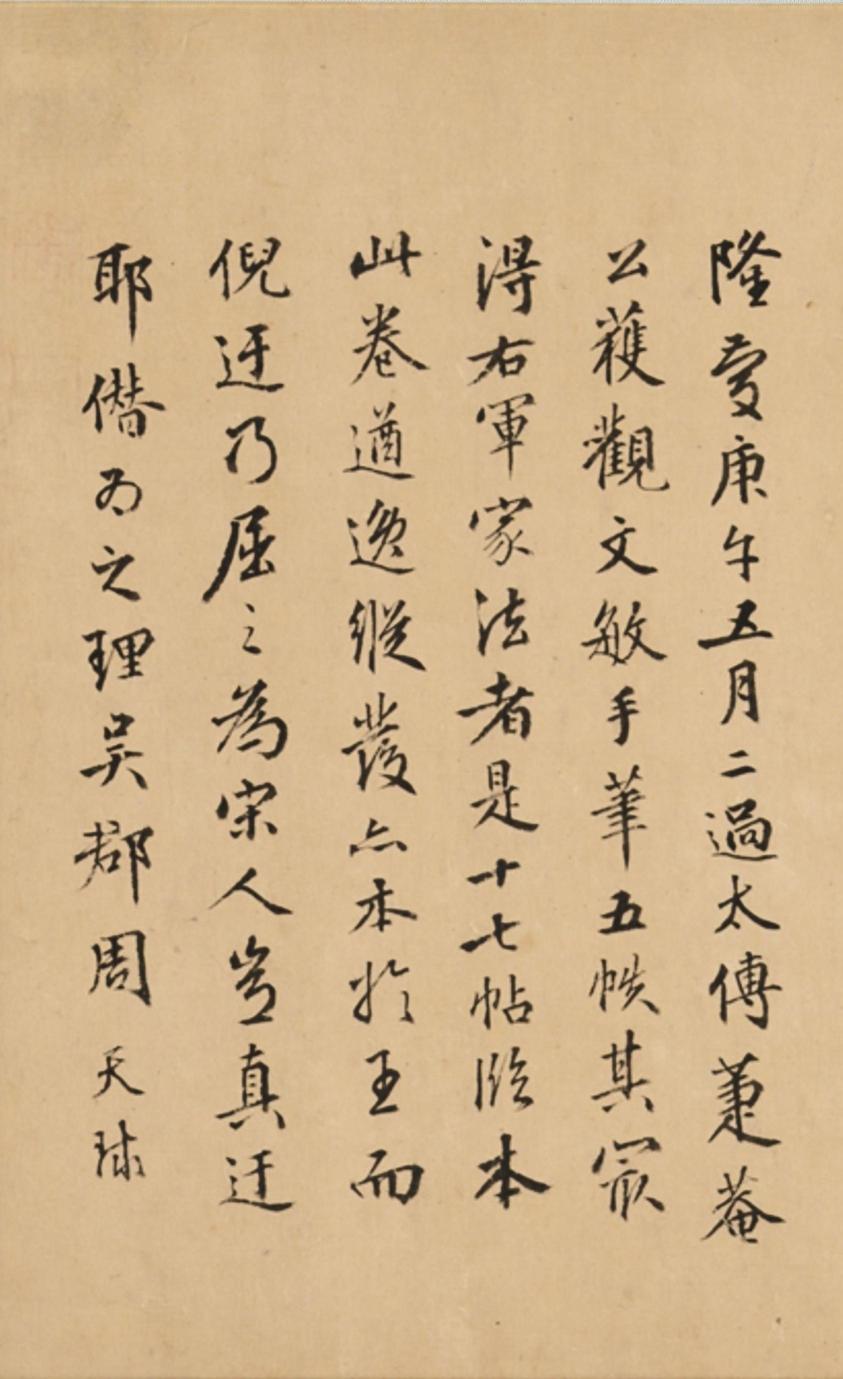 隆慶庚午五月二過太傅菴
公獲觀文敏手筆五帙其最
得右軍家法者是十七帖臨本
此卷遒逸縱發亦本於王而
倪迂乃屈之為宋人豈真迂
耶僭為之理吳郡周天球